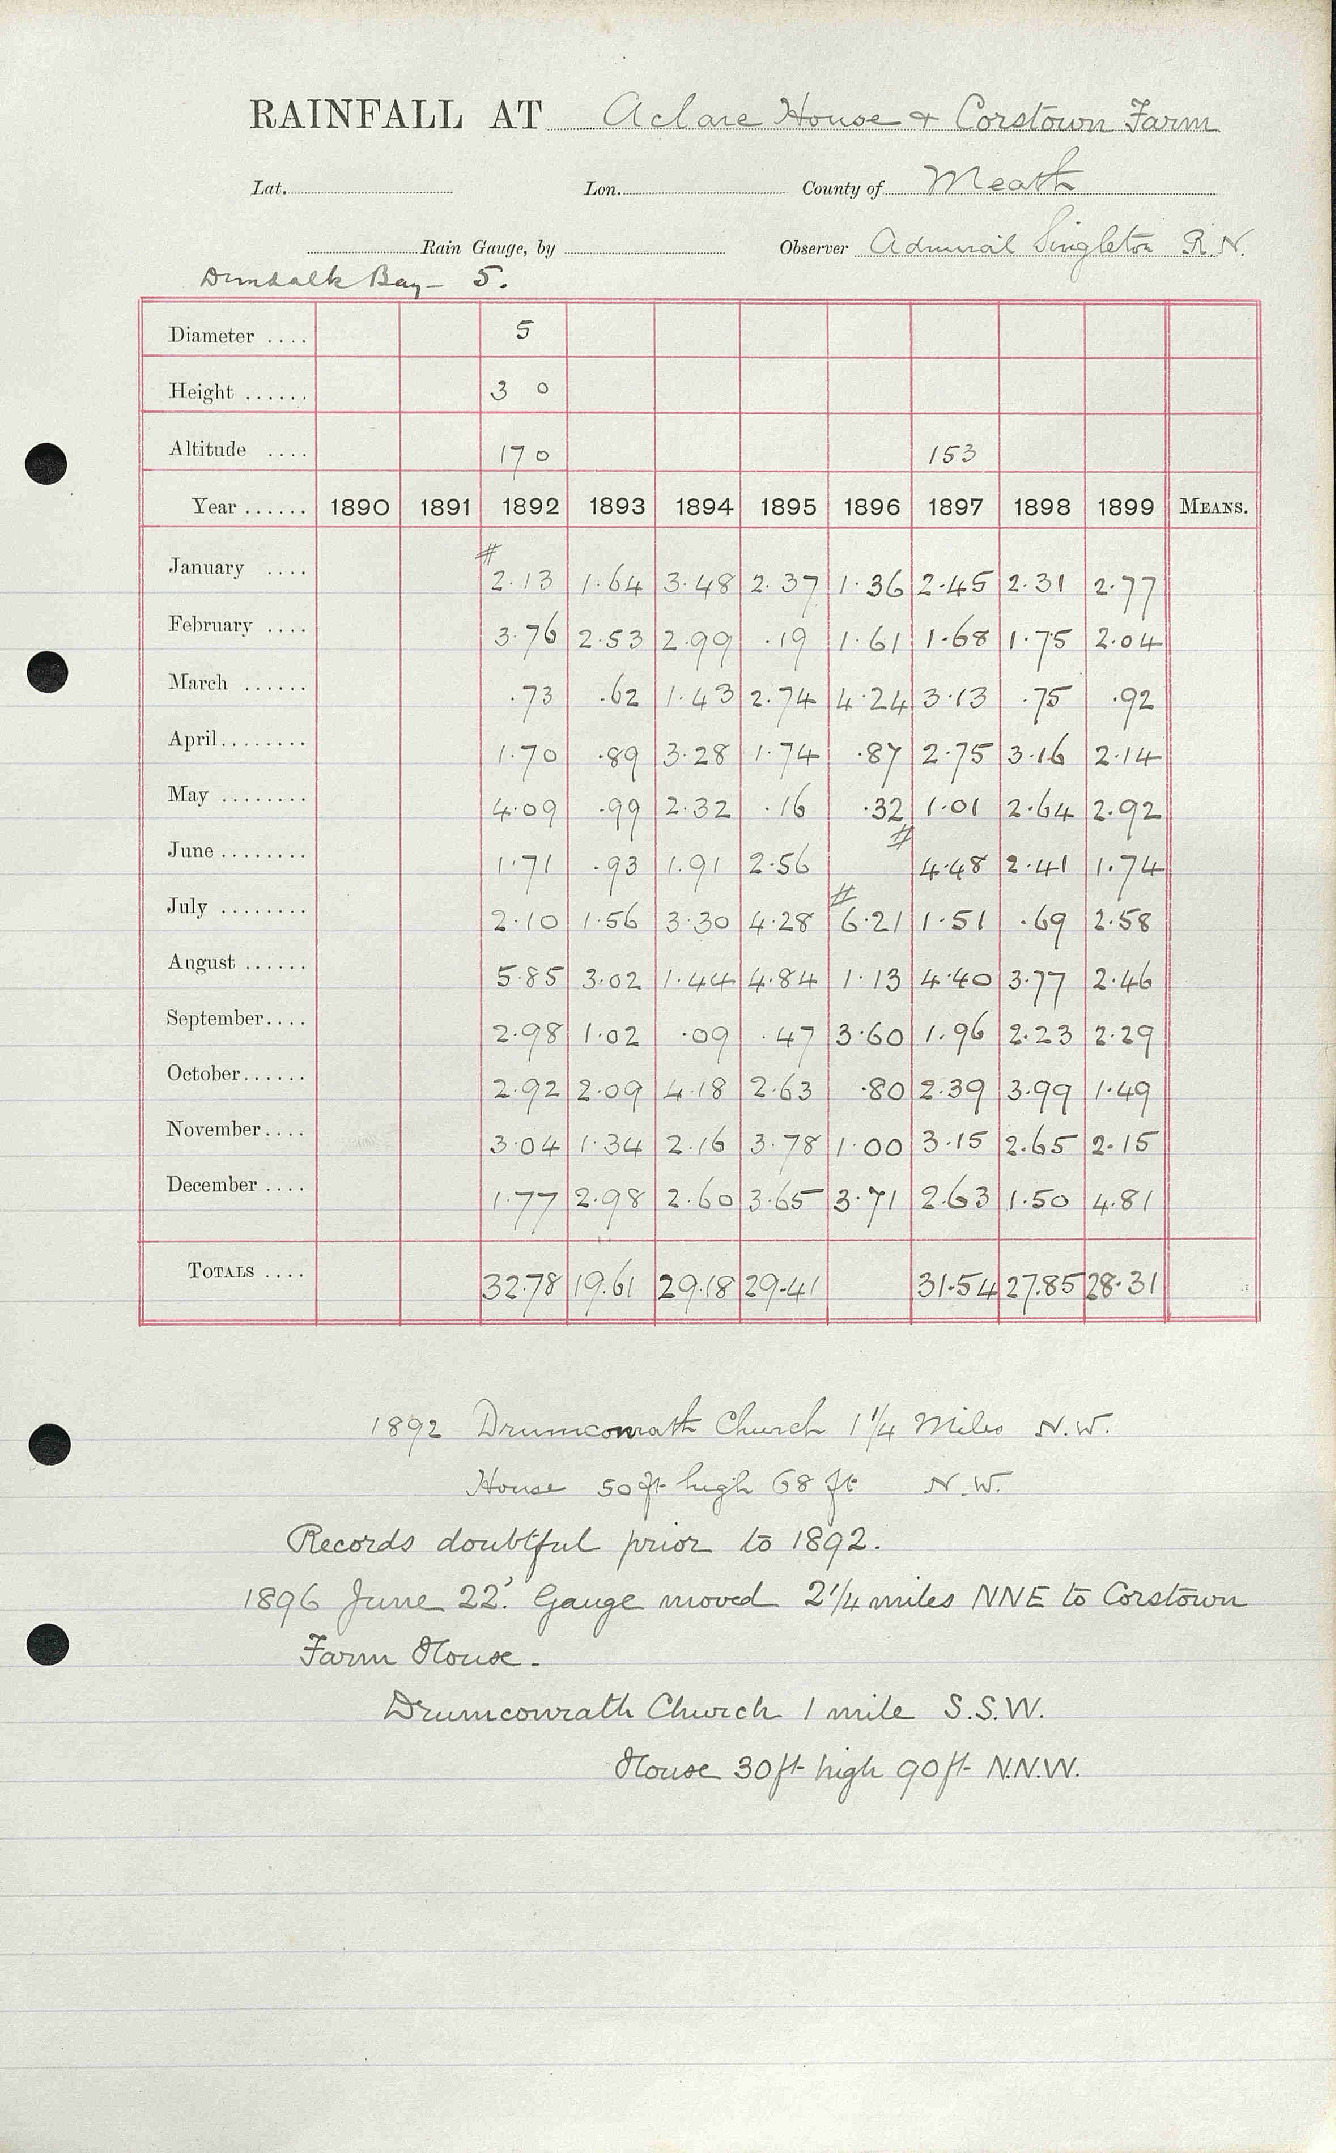 RAINFALL AT Aclare House + Corstown Farm
Lat. Lon. County of Meath
Rain Gauge, by Observer Admiral Singleton R.N.
Dundalk Bay - 5.
Diameter .... 5
Height ...... 3 0
Altitude .... 170 153
Year ...... 1890 1891 1892 1893 1894 1895 1896 1897 1898 1899 MEANS.
January .... # 2.13 1.64 3.48 2.37 1.36 2.45 2.31 2.77
February .... 3.76 2.53 2.99 .19 1.61 1.68 1.75 2.04
March ...... .73 .62 1.43 2.74 4.24 3.13 .75 .92
April........ 1.70 .89 3.28 1.74 .87 2.75 3.16 2.14
May ........ 4.09 .99 2.32 .16 .32 1.01 2.64 2.92
June ........ 1.71 .93 1.91 2.56 # 4.48 2.41 1.74
July ........ 2.10 1.56 3.30 4.28 # 6.21 1.51 .69 2.58
August ...... 5.85 3.02 1.44 4.84 1.13 4.40 3.77 2.46
September.... 2.98 1.02 .09 .47 3.60 1.96 2.23 2.29
October...... 2.92 2.09 4.18 2.63 .80 2.39 3.99 1.49
November.... 3.04 1.34 2.16 3.78 1.00 3.15 2.65 2.15
December .... 1.77 2.98 2.60 3.65 3.71 2.63 1.50 4.81
TOTALS .... 32.78 19.61 29.18 29.41 31.54 27.85 28.31
1892 Drumconrath Church 1 1/4 Miles N.W.
House 50 ft high 68 ft N.W.
Records doubtful prior to 1892.
1896 June 22. Gauge moved 2 1/4 miles NNE to Corstown
Farm House.
Drumconrath Church 1 mile S.S.W.
House 30 ft high 90 ft N.N.W.